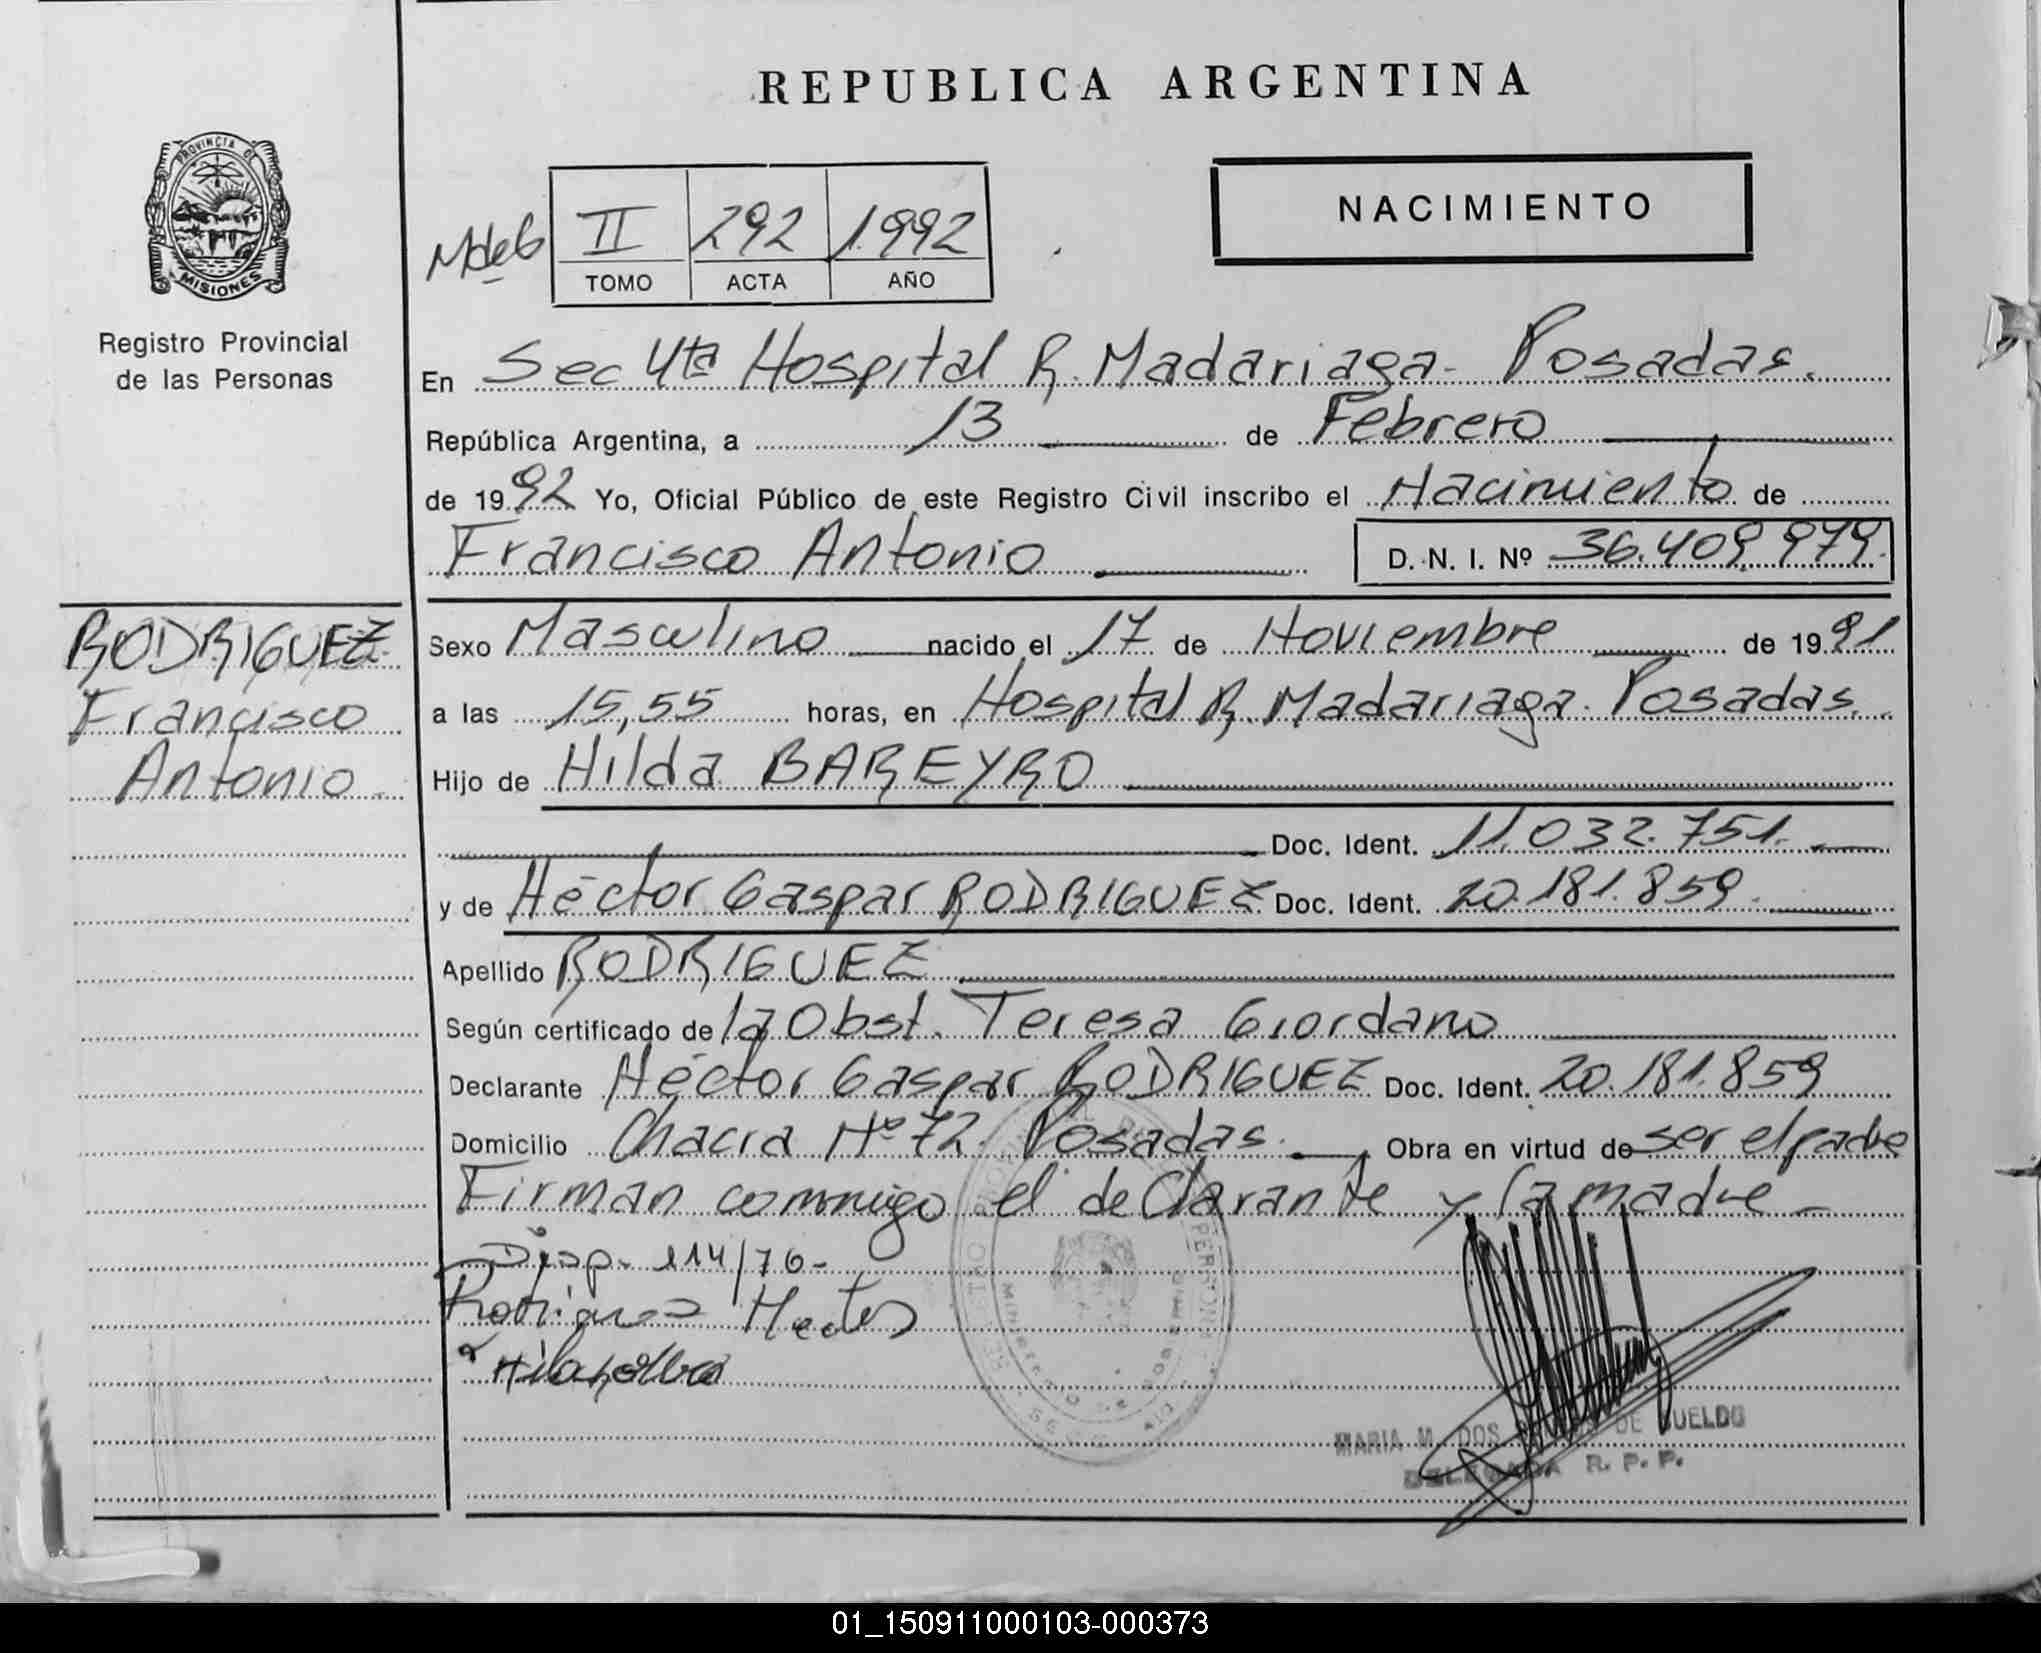 REPUBLICA ARGENTINA
PROVINCIA DE
MISIONES
Registro Provincial
de las Personas
II 292 1992
TOMO ACTA AÑO
NACIMIENTO
En Sec 4ta Hospital R. Madariaga - Posadas.
República Argentina, a 13 de Febrero
de 1992 Yo, Oficial Público de este Registro Civil inscribo el Nacimiento de
Francisco Antonio D. N. I. Nº 36.409.979.
RODRIGUEZ
Francisco
Antonio.
Sexo Masculino nacido el 17 de Noviembre de 1991
a las 15,55 horas, en Hospital R. Madariaga. Posadas.
Hijo de Hilda BAREYRO
Doc. Ident. 11.032.751.
y de Héctor Gaspar RODRIGUEZ Doc. Ident. 20.181.859.
Apellido RODRIGUEZ
Según certificado de la Obst. Teresa Giordano
Declarante Héctor Gaspar RODRIGUEZ Doc. Ident. 20.181.859
Domicilio Chacra Nº 72. Posadas. Obra en virtud de ser el padre
Firman conmigo el declarante y la madre -
Disp. 114/76-
Rodriguez
MARIA M. DOS DE SUELDO
DELEGADA R. P. P.
01_150911000103-000373